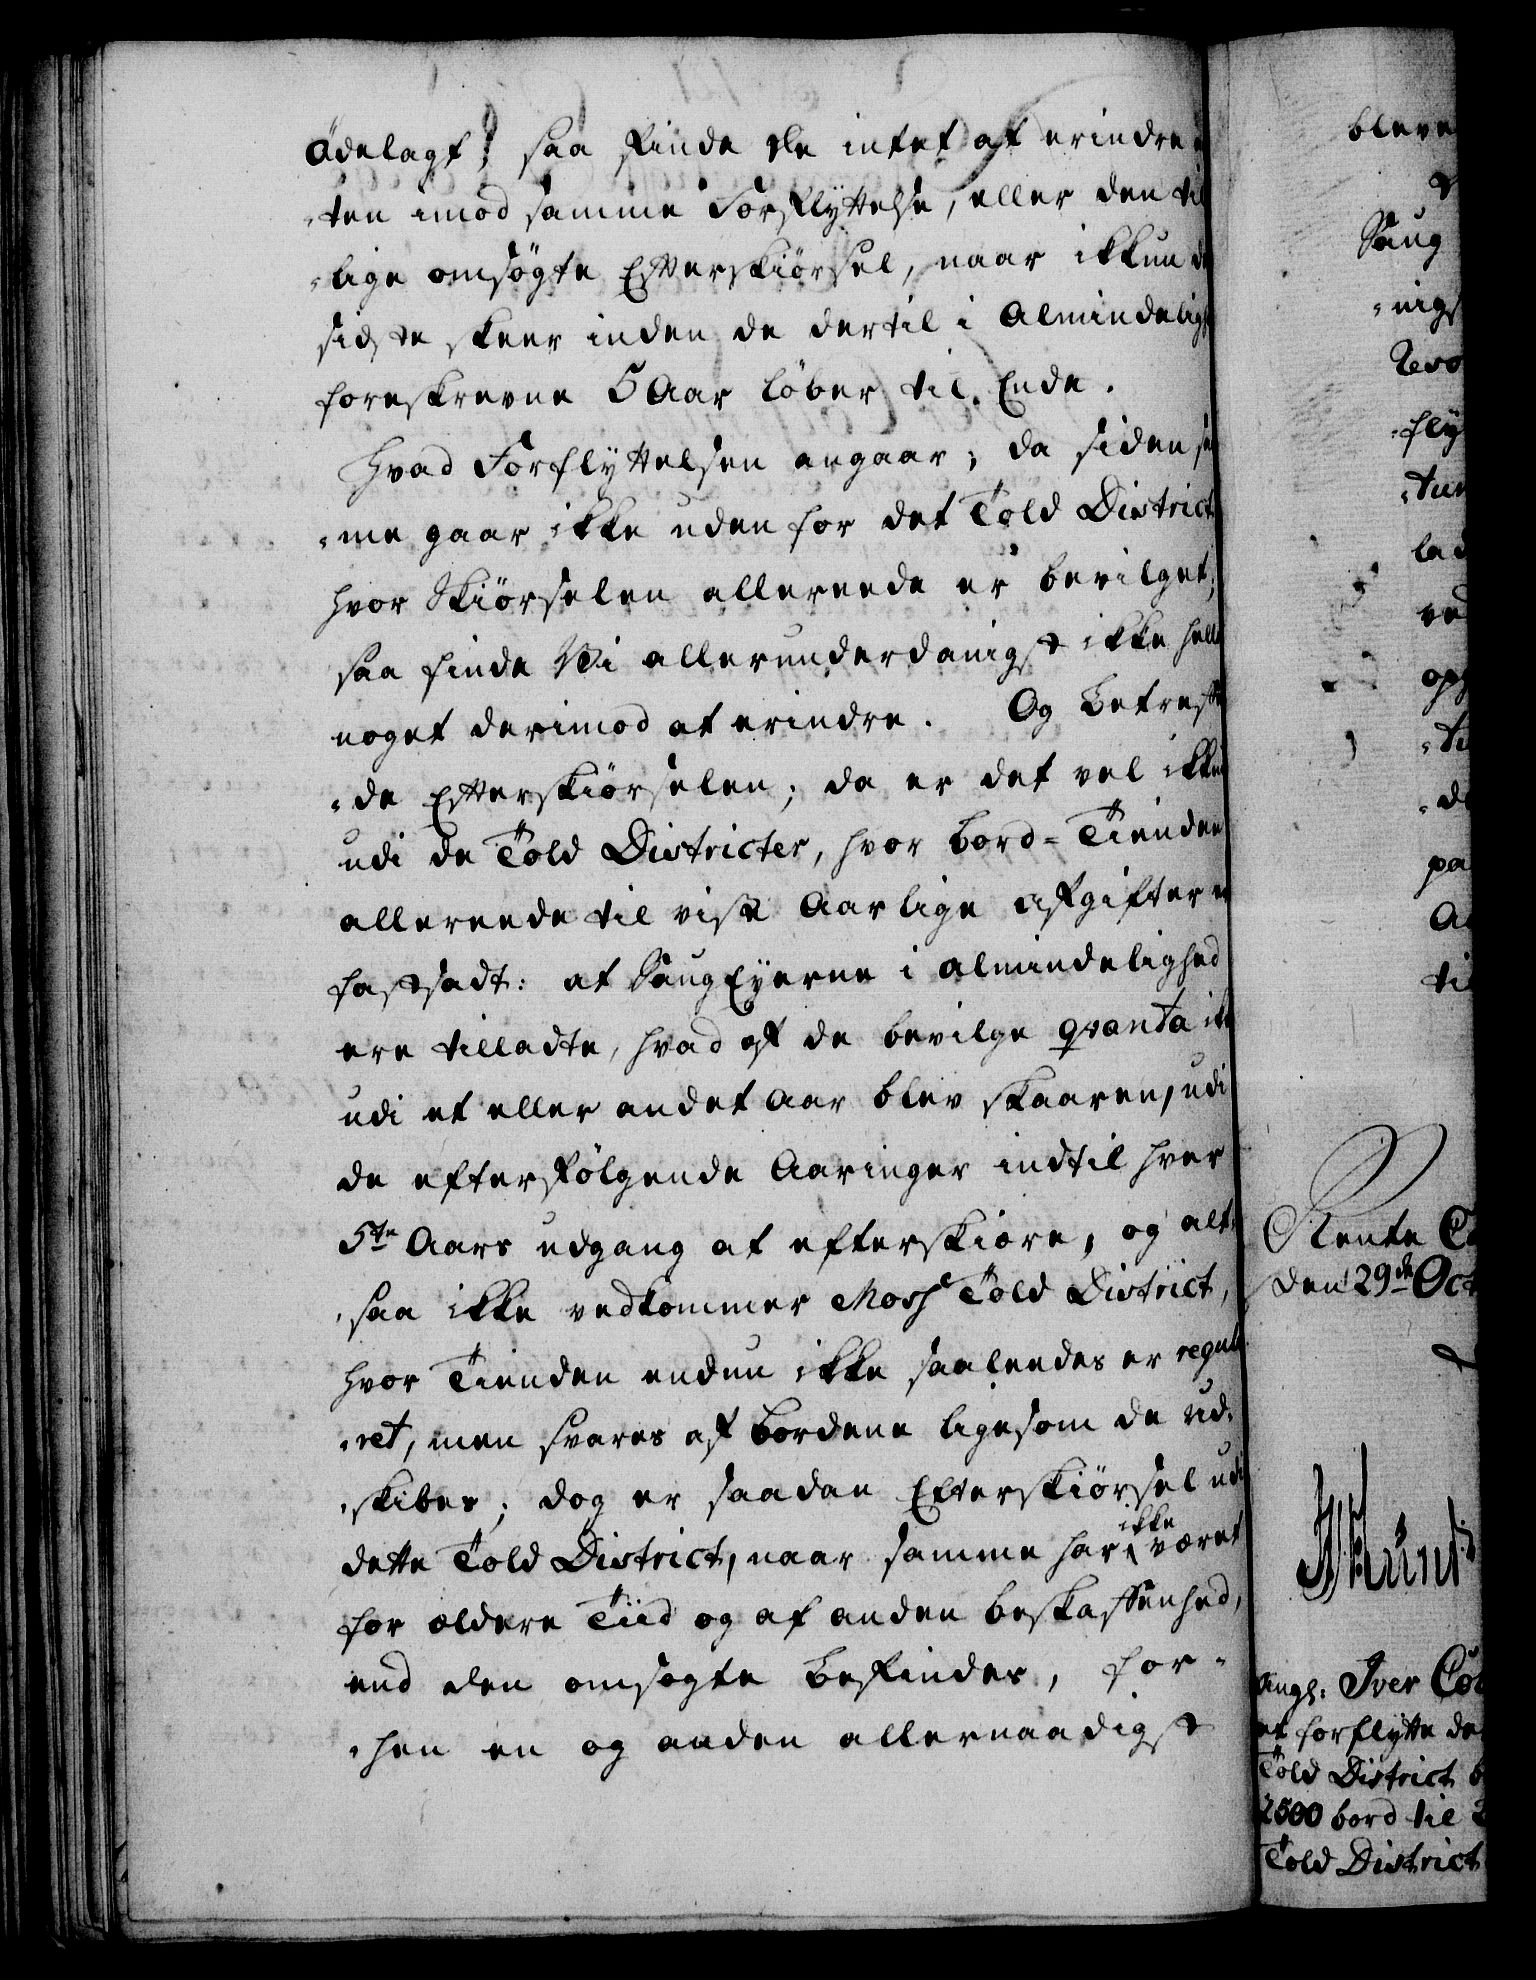 ödelagt; saa finde De intet at erindre
„ten imod samme Forflyttelse, eller den til
„lige omsøgte Efterskiørsel, naar ikkun d
sidste skeer inden de dertil i Almindelig
foreskrevne 5 Aar løber til Ende.
Hvad Forflyttelsen angaar; da siden sa
„me gaar ikke uden for det Told District
hvor Skiørselen allereede er bevilget;
saa finde Wi allerunderdanigst ikke hell
noget derimod at erindre. Og betreff
„de Efterskiørselen; da er det vel ikkun
udi de Told Districter, hvor bord-Tienden
allereede til visse Aarlige afgifter er
fastsadt: at Saug Eyerne i almindelighed
ere tilladte, hvad af de bevilge qvanta ik
udi et eller andet Aar blev skaaren, udi
de efterfølgende Aaringer indtil hver
5te Aars udgang at efterskiære, og alt„
„saa ikke vedkommer Moss Told District,
hvor Tienden endnu ikke saaledes er regule
„ret, men svares af bordene ligesom de ud„
„skibes; dog er saadan Efterskiørsel udi
dette Told District, naar samme har ikke været
for ældere Tiid og af anden beskaffenhed,
end den omsøgte befindes, for„
„hen en og anden allernaadigst
bleve
Saug
„nigs
Reso
„fly
„tun
lad
ved
opg
„tu
„de
pa
A
til
Rente Ca
den 29de Oct
Angl: Iver Col
at forflytte de
Told District b
2500 bord til
Told District